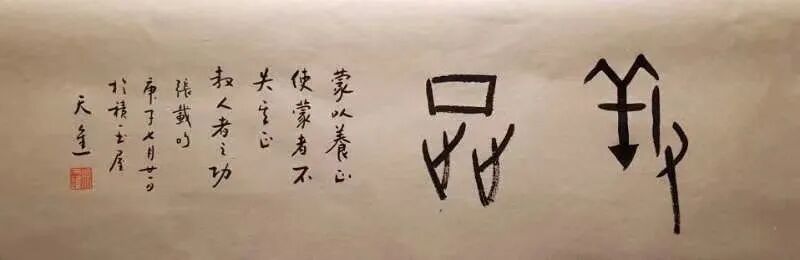 養正
蒙以養正
使蒙者不
失其正
教人者之功
張載句
庚子七月廿一日
於積玉屋
天